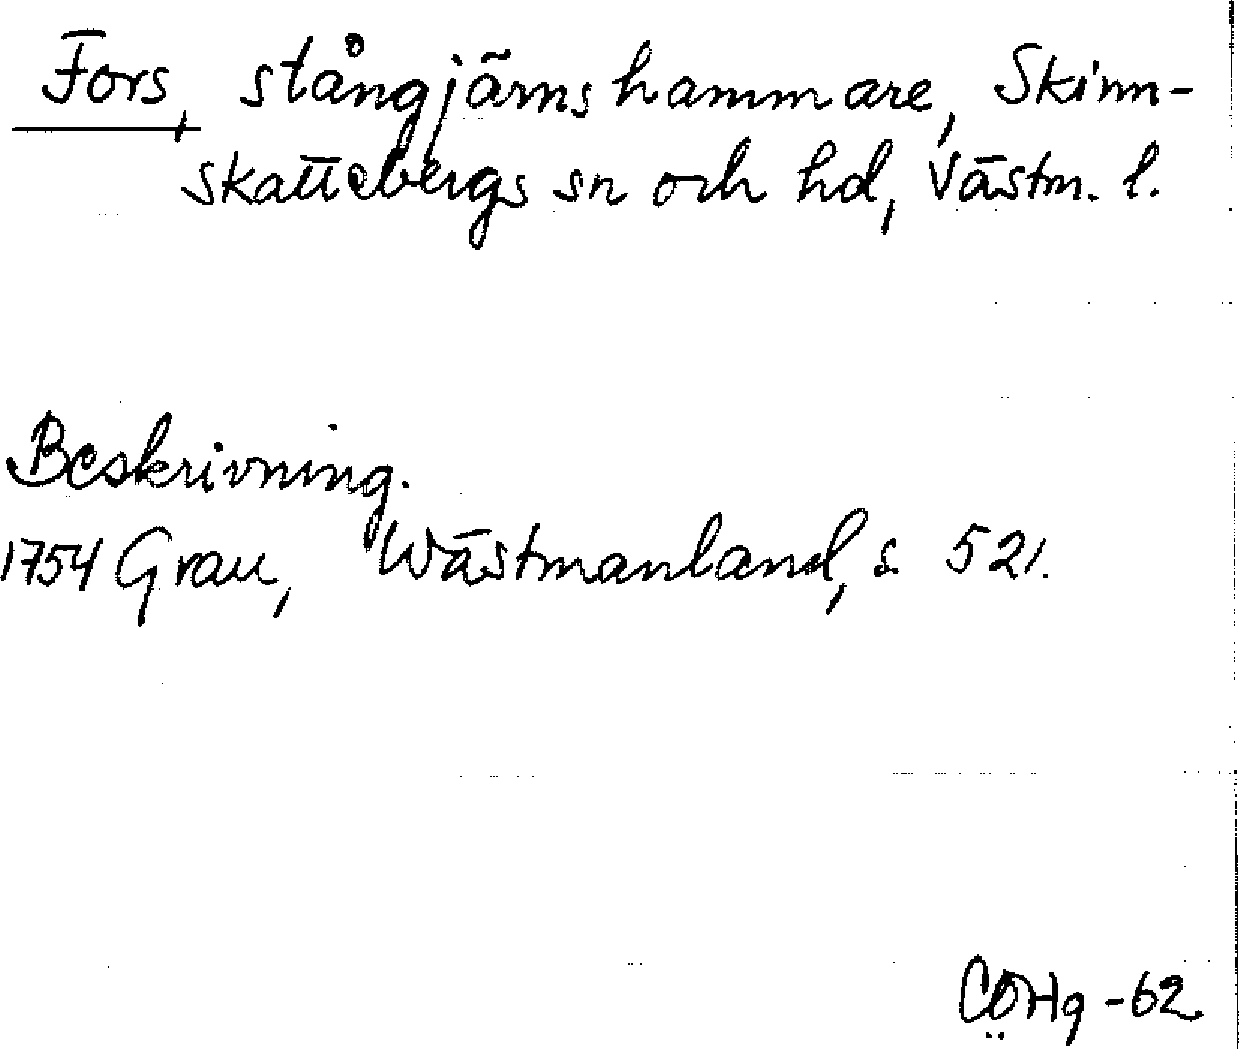 Fors, stångjärnshammare, Skinn-
skattebergs sn och hd, Västm. l.
Beskrivning.
1754 Grau, Wästmanland, s. 521.
CÖHg -62